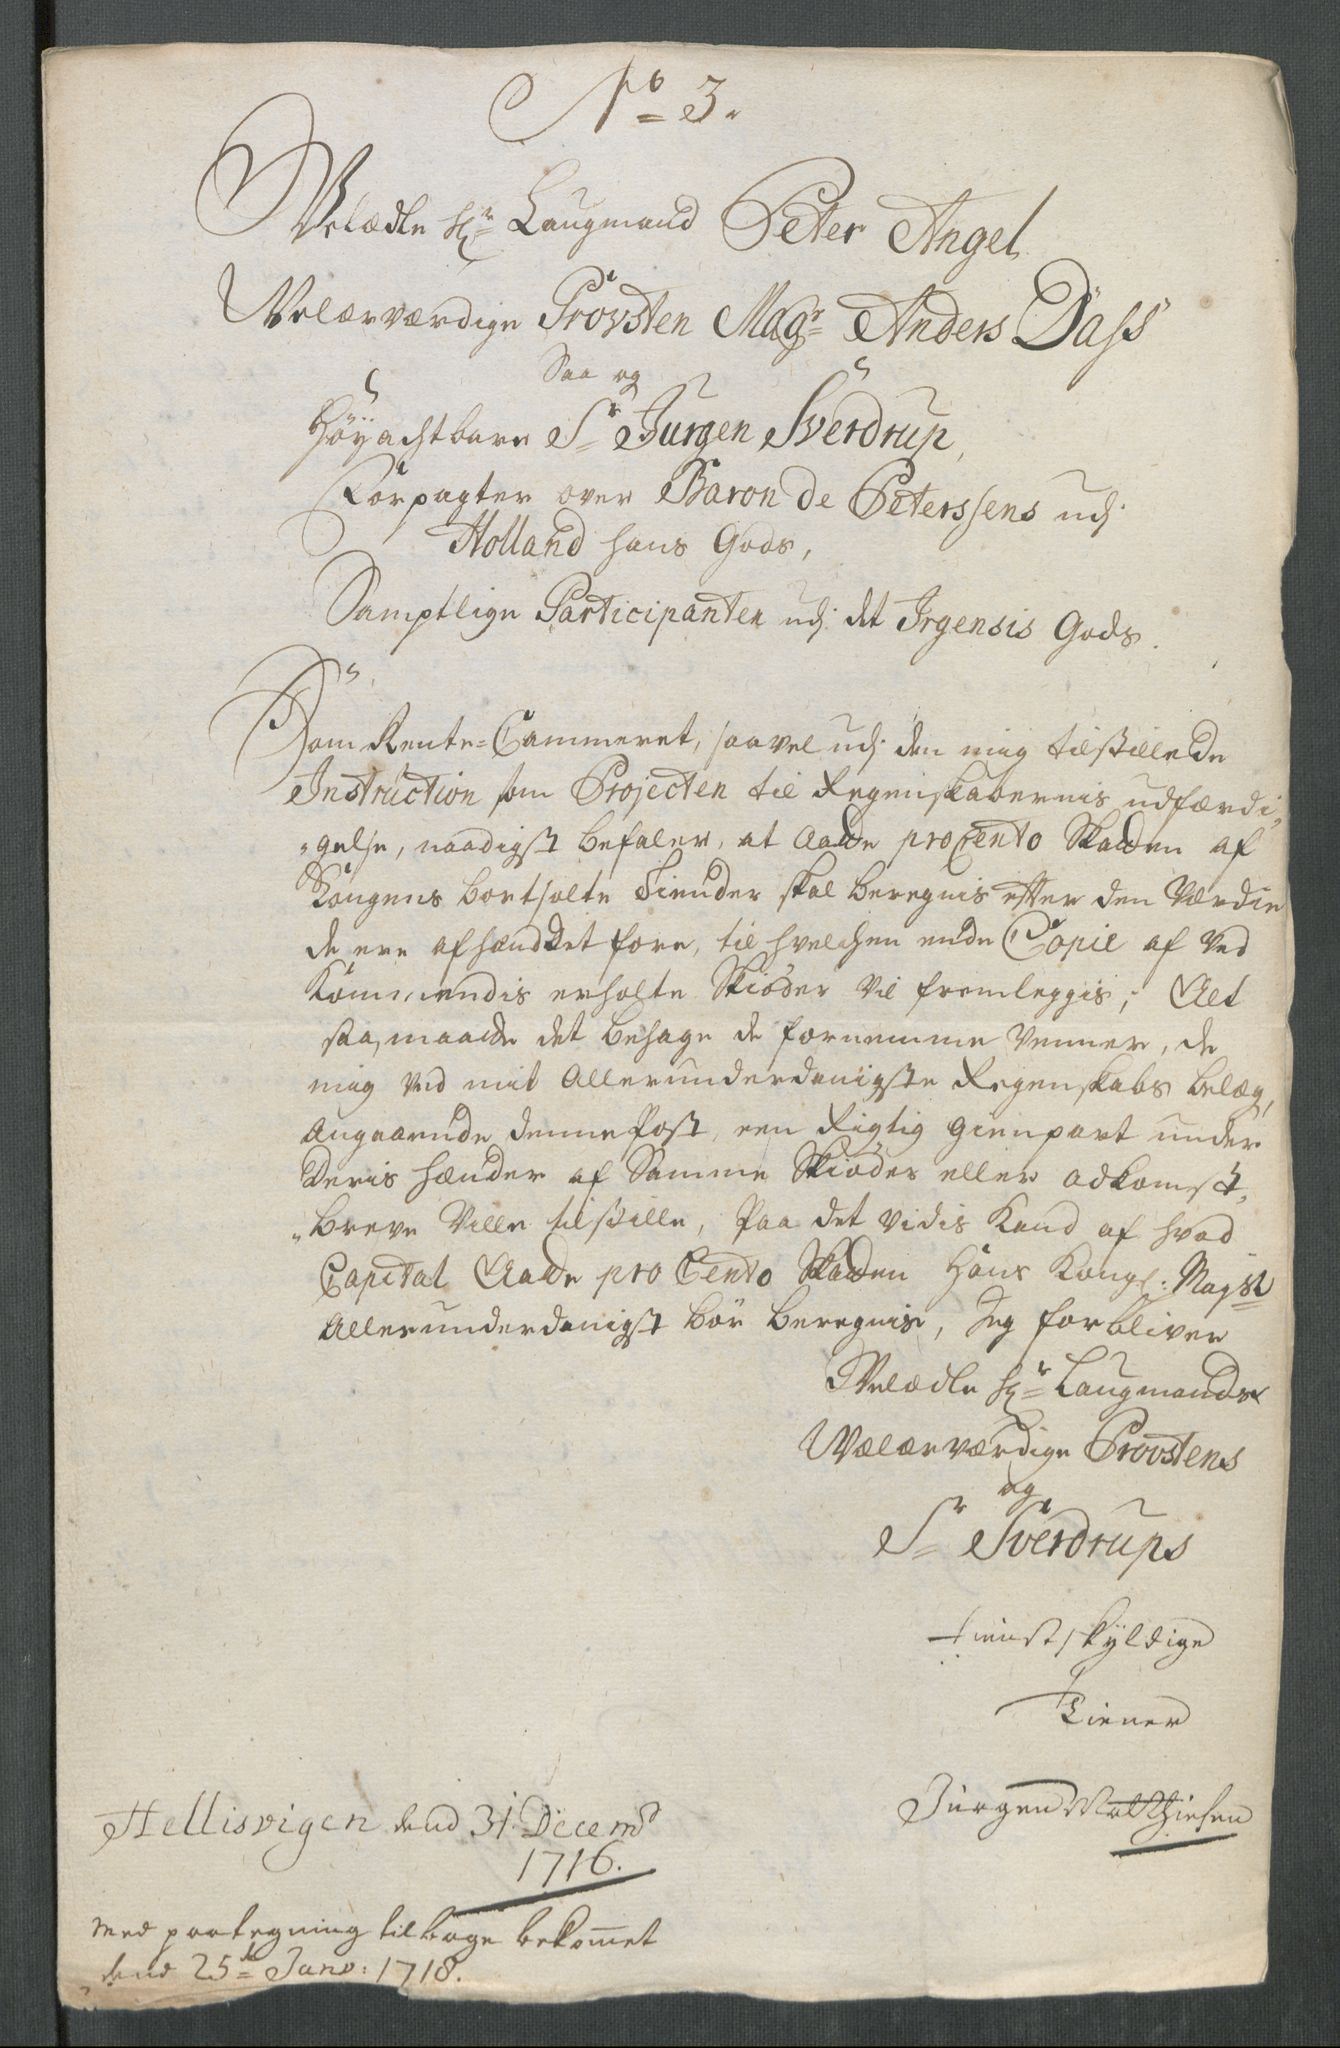 No 3.
Velædle Hr Laugmand Peter Angel
Velærværdige Provsten Magr Anders Dass
Saa og
Høÿachtbare Sr Jürgen Sverdrup,
Forpagter over Baron de Peterssens udj
Holland hans Gods,
Samptlige Participanter udj det Irgensis Gods.
Som Rente-Cammeret, saavel udj den mig tilstillede
Instruction som Projecten til Regenskabernis udfærdi-
gelse, naadigst befaler, at Aatte pro Cento Skatten af
Kongens bortsolte Tiender skal beregnis efter den Værdie
de ere afhændet fore, til hvelchen ende Copie af Ved
Kommendis erholte Skiøder vil fremleggis; Alt
saa, maatte det behage de fornemme Venner, de
mig ved mit Allerunderdanigste Regenskabs belæg,
Angaaende denne Post, een Rigtig gienpart under
Deris hænder af Samme Skiøder eller adkomst-
breve ville tilstille, Paa det vidis kand af hvad
Capital Aatte pro Cento Skatten Hans Kongl: Mayst
Allerunderdanigst bør beregnis, Jeg forbliver
Velædle Hr Laugmands
Vælærværdige Provstens
og
Sr Sverdrups
tienstskÿldige
Tiener
Jürgen Matthiesen
Hellisvigen dend 31. Decemb
1716.
Med paategning tilbage bekommet
dend 25de Janv: 1718.